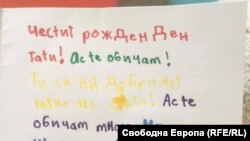 Честит рожден Ден
Тати! Ас те обичам!
Ти си най добрият
татко на света! Ас те
обичам много
Свободна Европа (RFE/RL)